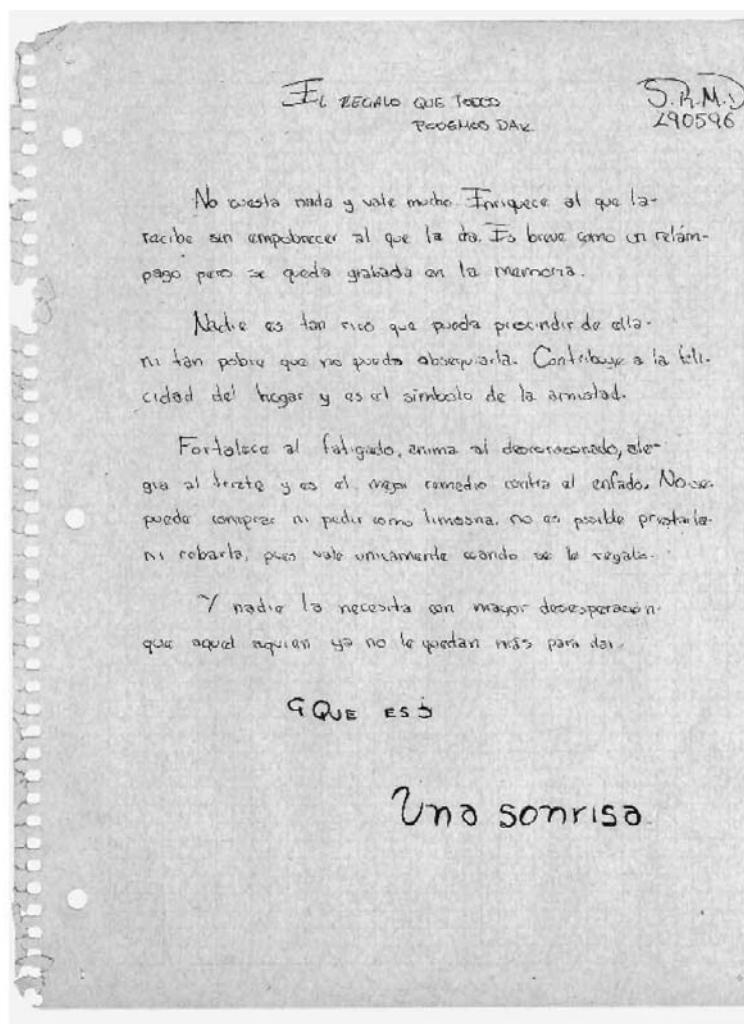 El REGALO QUE TODOS
PODEMOS DAR
S.R.M.D
290596
No cuesta nada y vale mucho. Enriquece al que la
recibe sin empobrecer al que la da. Es breve como un relám-
pago pero se queda grabada en la memoria.
Nadie es tan rico que pueda prescindir de ella
ni tan pobre que no pueda obsequiarla. Contribuye a la feli-
cidad del hogar y es el símbolo de la amistad.
Fortalece al fatigado, anima al descorazonado, ale-
gra al triste y es el mejor remedio contra el enfado. No se
puede comprar ni pedir como limosna, no es posible prestarla
ni robarla, pues vale unicamente cuando se le regala.
Y nadie la necesita con mayor desesperación
que aquel aquien ya no le quedan más para dar.
¿QUE ES?
Una sonrisa